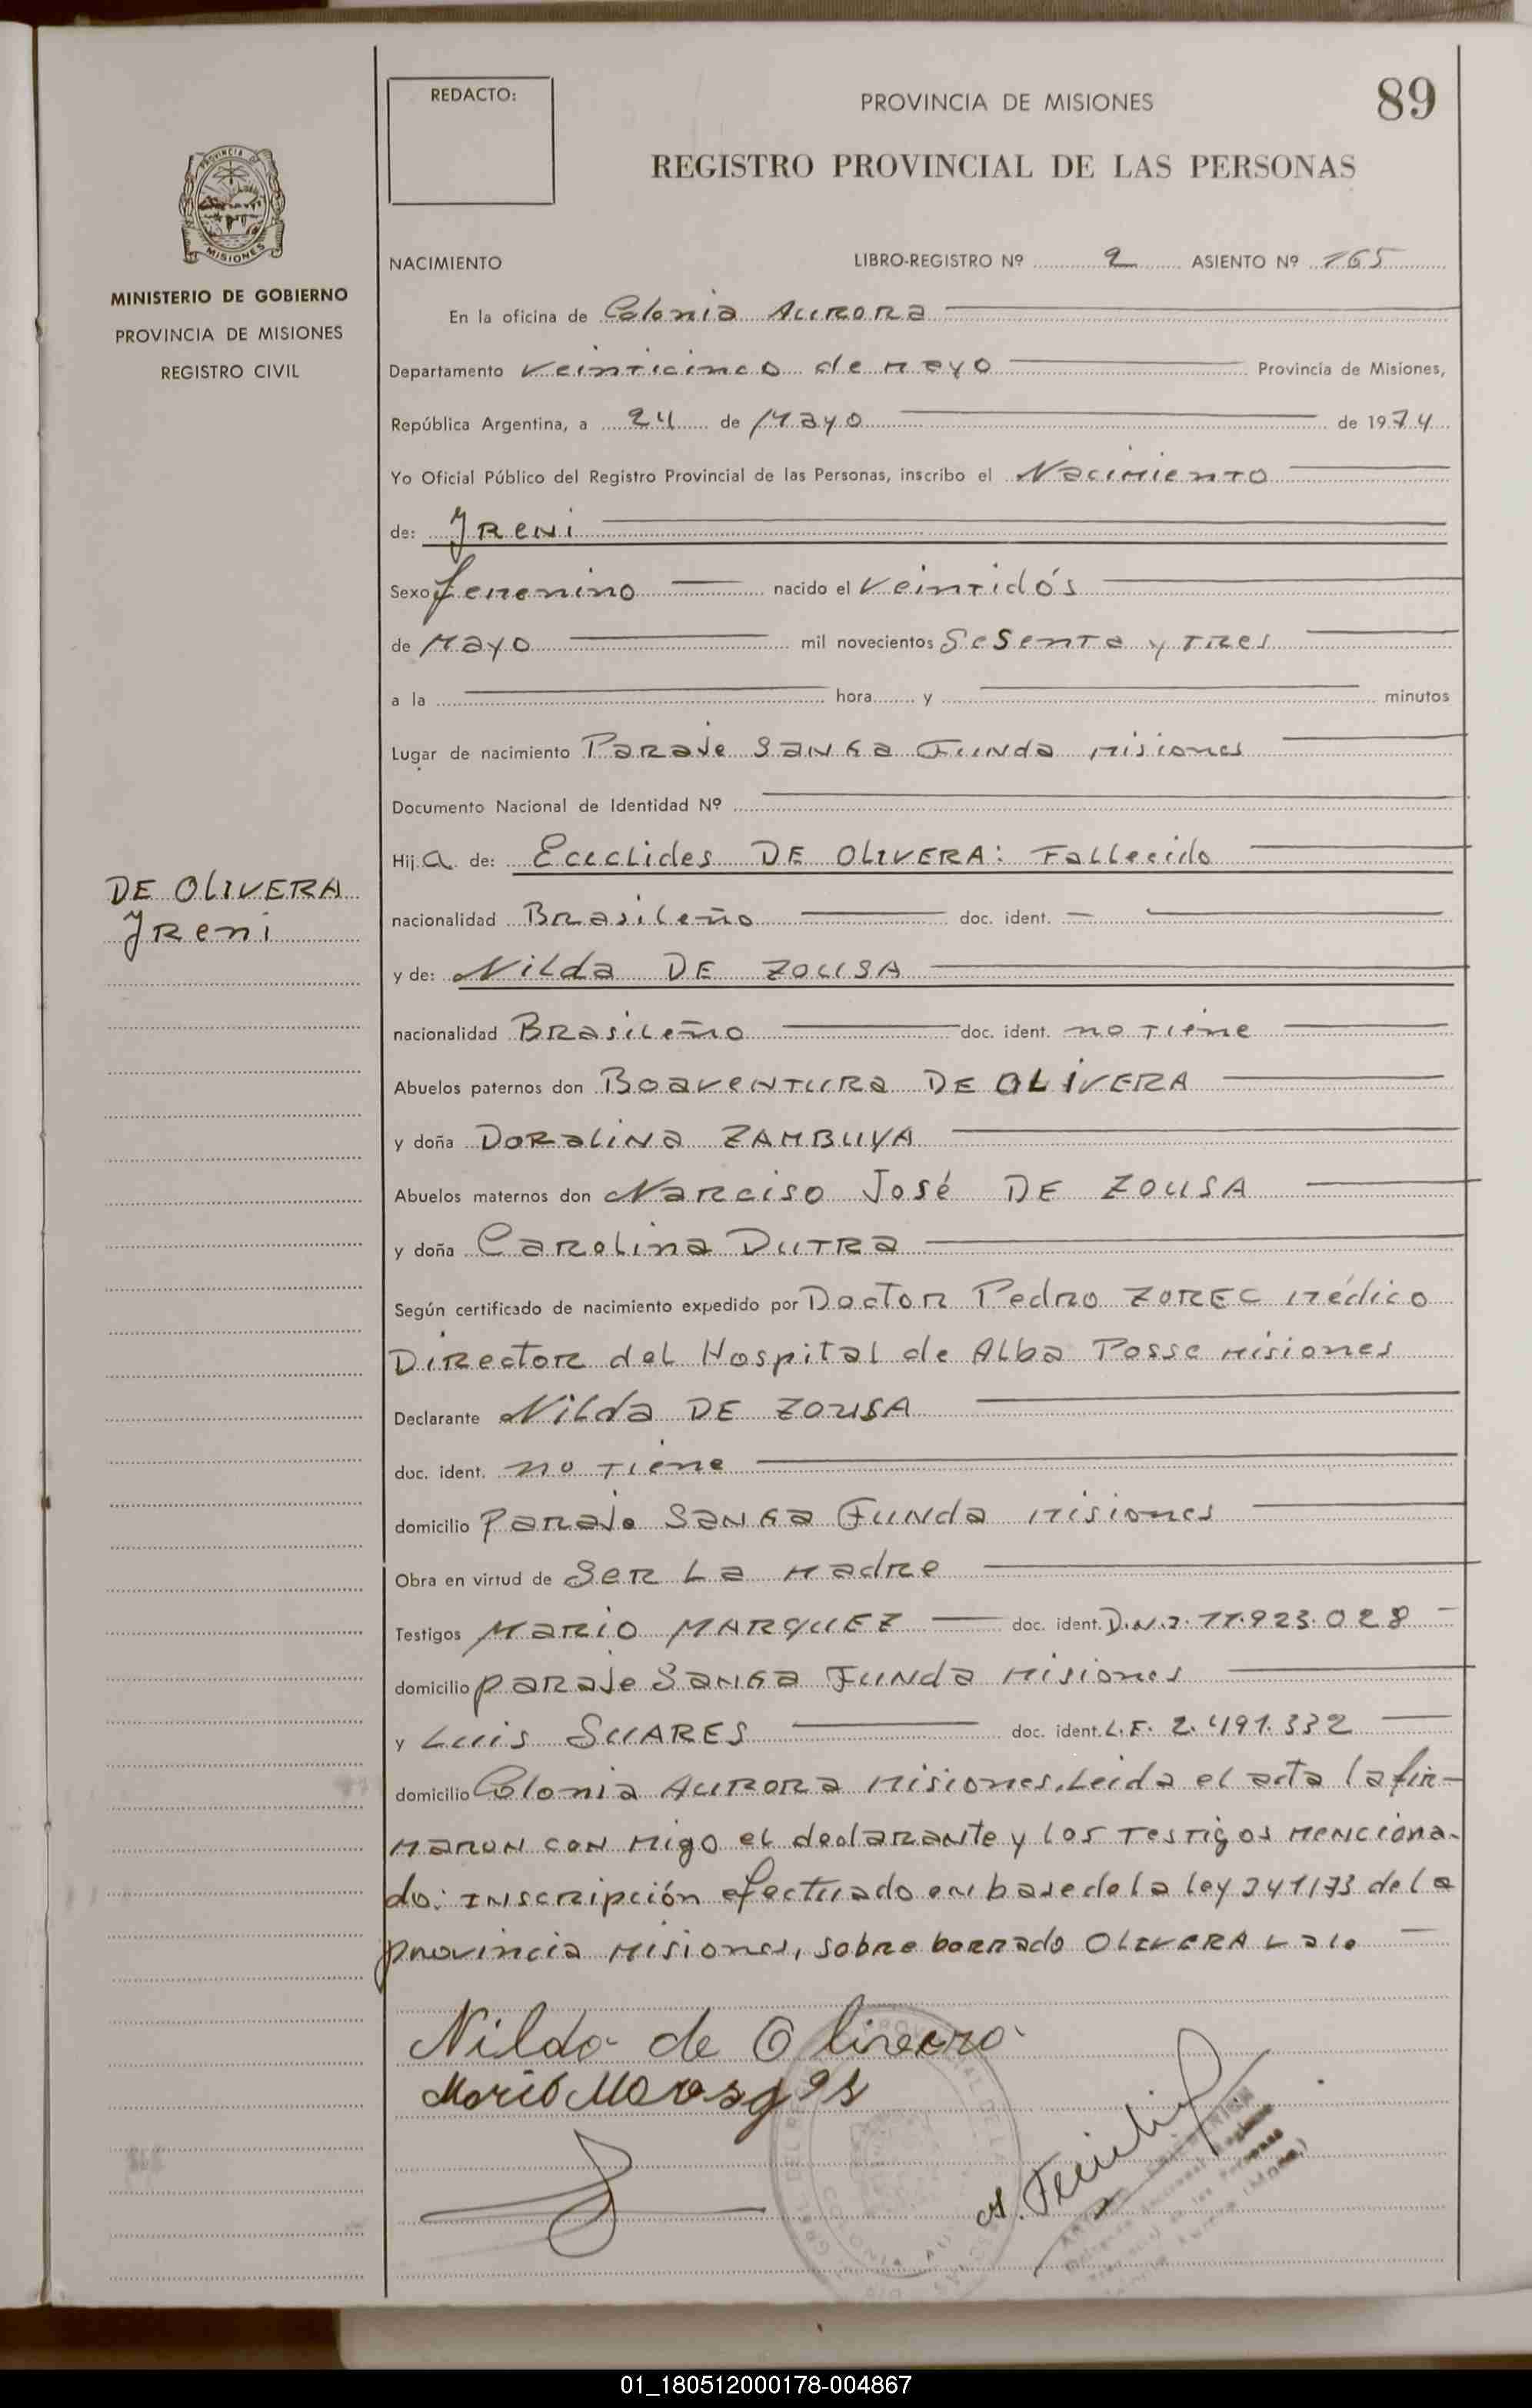 REDACTO:
PROVINCIA DE MISIONES
89
REGISTRO PROVINCIAL DE LAS PERSONAS
PROVINCIA DE
MISIONES
MINISTERIO DE GOBIERNO
PROVINCIA DE MISIONES
REGISTRO CIVIL
NACIMIENTO LIBRO-REGISTRO Nº 2 ASIENTO Nº 165
En la oficina de Colonia AURORA
Departamento Veinticinco de mayo Provincia de Misiones,
República Argentina, a 24 de Mayo de 1974
Yo Oficial Público del Registro Provincial de las Personas, inscribo el Nacimiento
de: Ireni
Sexo femenino nacido el Veintidós
de Mayo mil novecientos Sesenta y tres
a la hora y minutos
Lugar de nacimiento Paraje Sanga Funda Misiones
Documento Nacional de Identidad Nº
Hija de: Euclides DE OLIVERA: Fallecido
DE OLIVERA
Ireni
nacionalidad Brasileño doc. ident. —
y de: Nilda DE ZOUSA
nacionalidad Brasileño doc. ident. no tiene
Abuelos paternos don Boaventura DE OLIVERA
y doña Doralina ZAMBUYA
Abuelos maternos don Narciso José DE ZOUSA
y doña Carolina Dutra
Según certificado de nacimiento expedido por Doctor Pedro ZOREC Médico
Director del Hospital de Alba Posse Misiones
Declarante Nilda DE ZOUSA
doc. ident. no tiene
domicilio Paraje Sanga Funda Misiones
Obra en virtud de Ser La Madre
Testigos Mario MARQUEZ doc. ident. D.N.I. 11.923.028
domicilio paraje Sanga Funda Misiones
y Luis SUARES doc. ident. L.E. 2.491.332
domicilio Colonia Aurora Misiones. Leida el acta la fir-
maron con migo el declarante y los testigos menciona-
do: Inscripción efectuado en base de la ley 241/73 de la
provincia Misiones, sobre borrado OLIVERA vale
Nilda de Oliveira
Mario